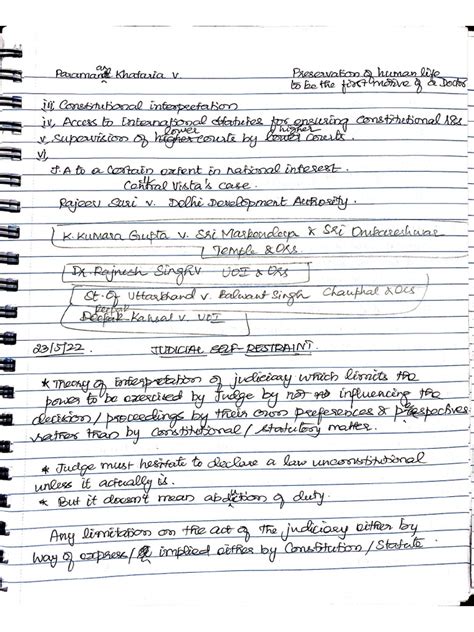 Paramanand Khataria v. Preservation of human life
to be the first motive of a Doctor
iii) Constitutional interpretation
iv, Access to International statutes for ensuring constitutional
v, Supervision of lower courts by higher courts.
vi)
A to a certain extent in national interest.
Central Vista's case.
Rajeev Suri v. Delhi Development Authority.
K. Kumara Gupta v. Sri Markendaya & Sri Omkareshwar
Temple & Ors
Dr. Rajnesh Singh v UOI & Ors
St. Of Uttarkhand v. Balwant Singh Chauphal & Ors
Deepak Kansal v. UOI
23/5/22. JUDICIAL SELF-RESTRAINT.
* Theory of interpretation of judiciary which limits the
power to be exercised by Judge by not influencing the
decision / proceedings by their own preferences & perspectives
rather than by constitutional / statutory matter.
* Judge must hesitate to declare a law unconstitutional
unless it actually is.
* But it doesn't mean of duty.
Any limitation on the act of the judiciary either by
way of express / implied either by Constitution / Statute.